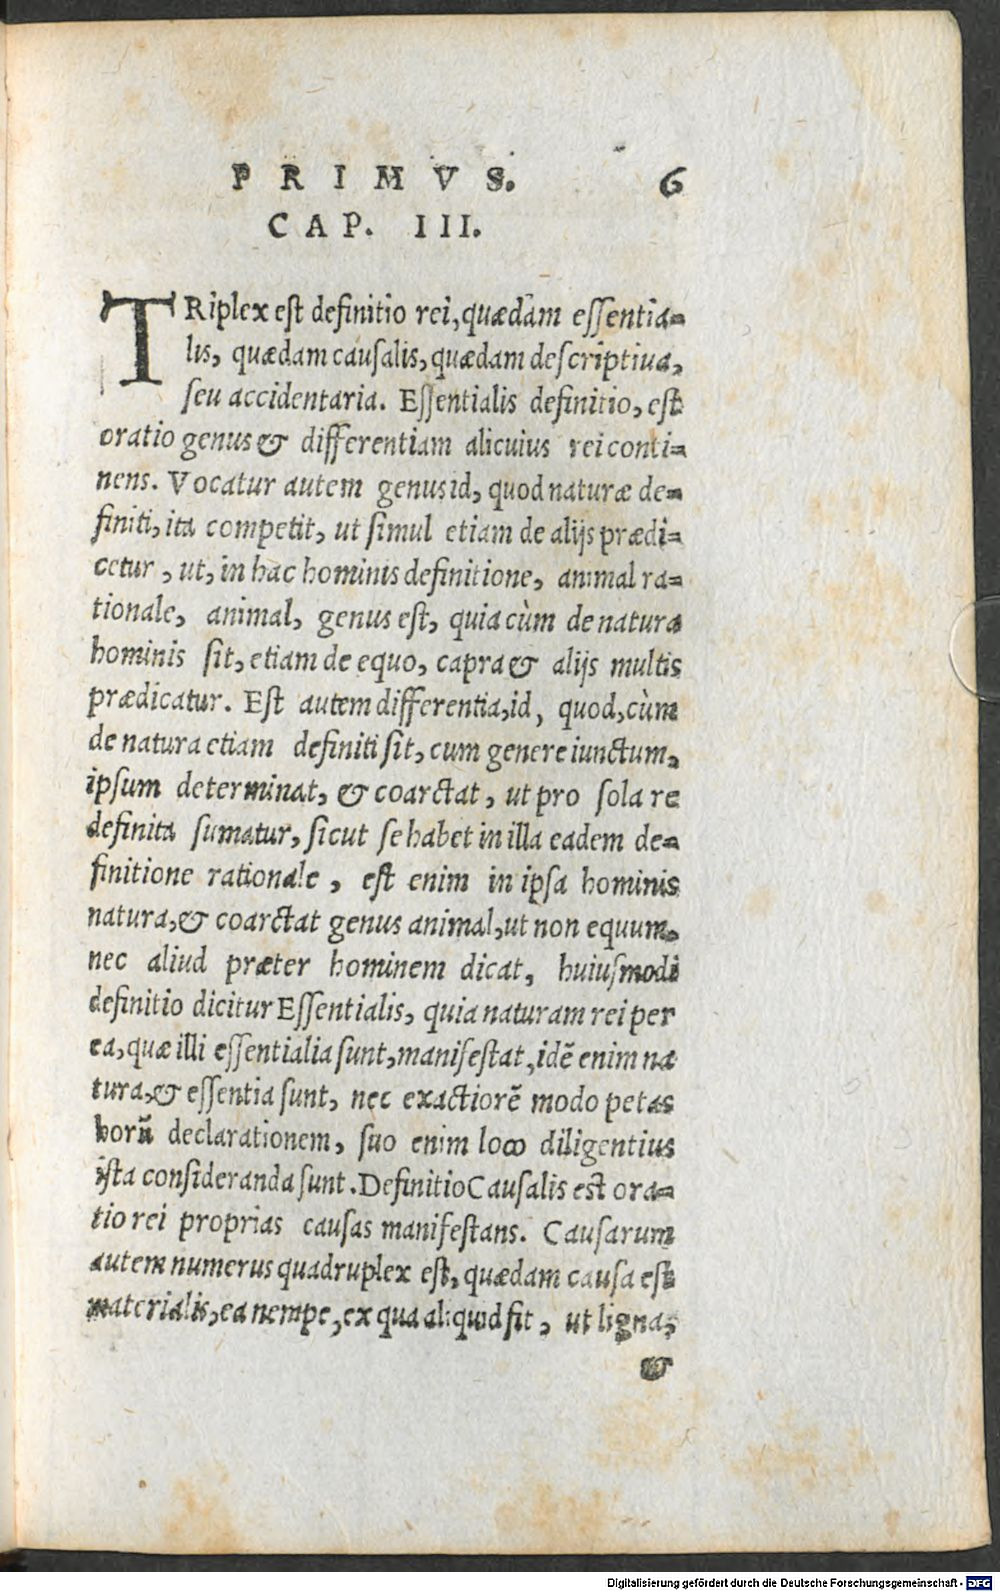 PRIMVS. 6
CAP. III.
TRiplex est definitio rei, quædam essentia=
lis, quædam causalis, quædam descriptiua,
seu accidentaria. Essentialis definitio, est
oratio genus & differentiam alicuius rei conti=
nens. Vocatur autem genus id, quod naturæ de=
finiti, ita competit, ut simul etiam de alijs prædi=
cetur, ut, in hac hominis definitione, animal ra=
tionale, animal, genus est, quia cùm de natura
hominis sit, etiam de equo, capra & alijs multis
prædicatur. Est autem differentia, id, quod, cùm
de natura etiam definiti sit, cum genere iunctum,
ipsum determinat, & coarctat, ut pro sola re
definita sumatur, sicut se habet in illa eadem de=
finitione rationale, est enim in ipsa hominis
natura, & coarctat genus animal, ut non equum,
nec aliud præter hominem dicat, huiusmodi
definitio dicitur Essentialis, quia naturam rei per
ea, quæ illi essentialia sunt, manifestat, idē enim na
tura, & essentia sunt, nec exactiorē modo petas
horū declarationem, suo enim loco diligentius
ista consideranda sunt. Definitio Causalis est ora=
tio rei proprias causas manifestans. Causarum
autem numerus quadruplex est, quædam causa est
materialis, ea nempe, ex qua aliquid fit, ut ligna,
&
Digitalisierung gefördert durch die Deutsche Forschungsgemeinschaft - DFG